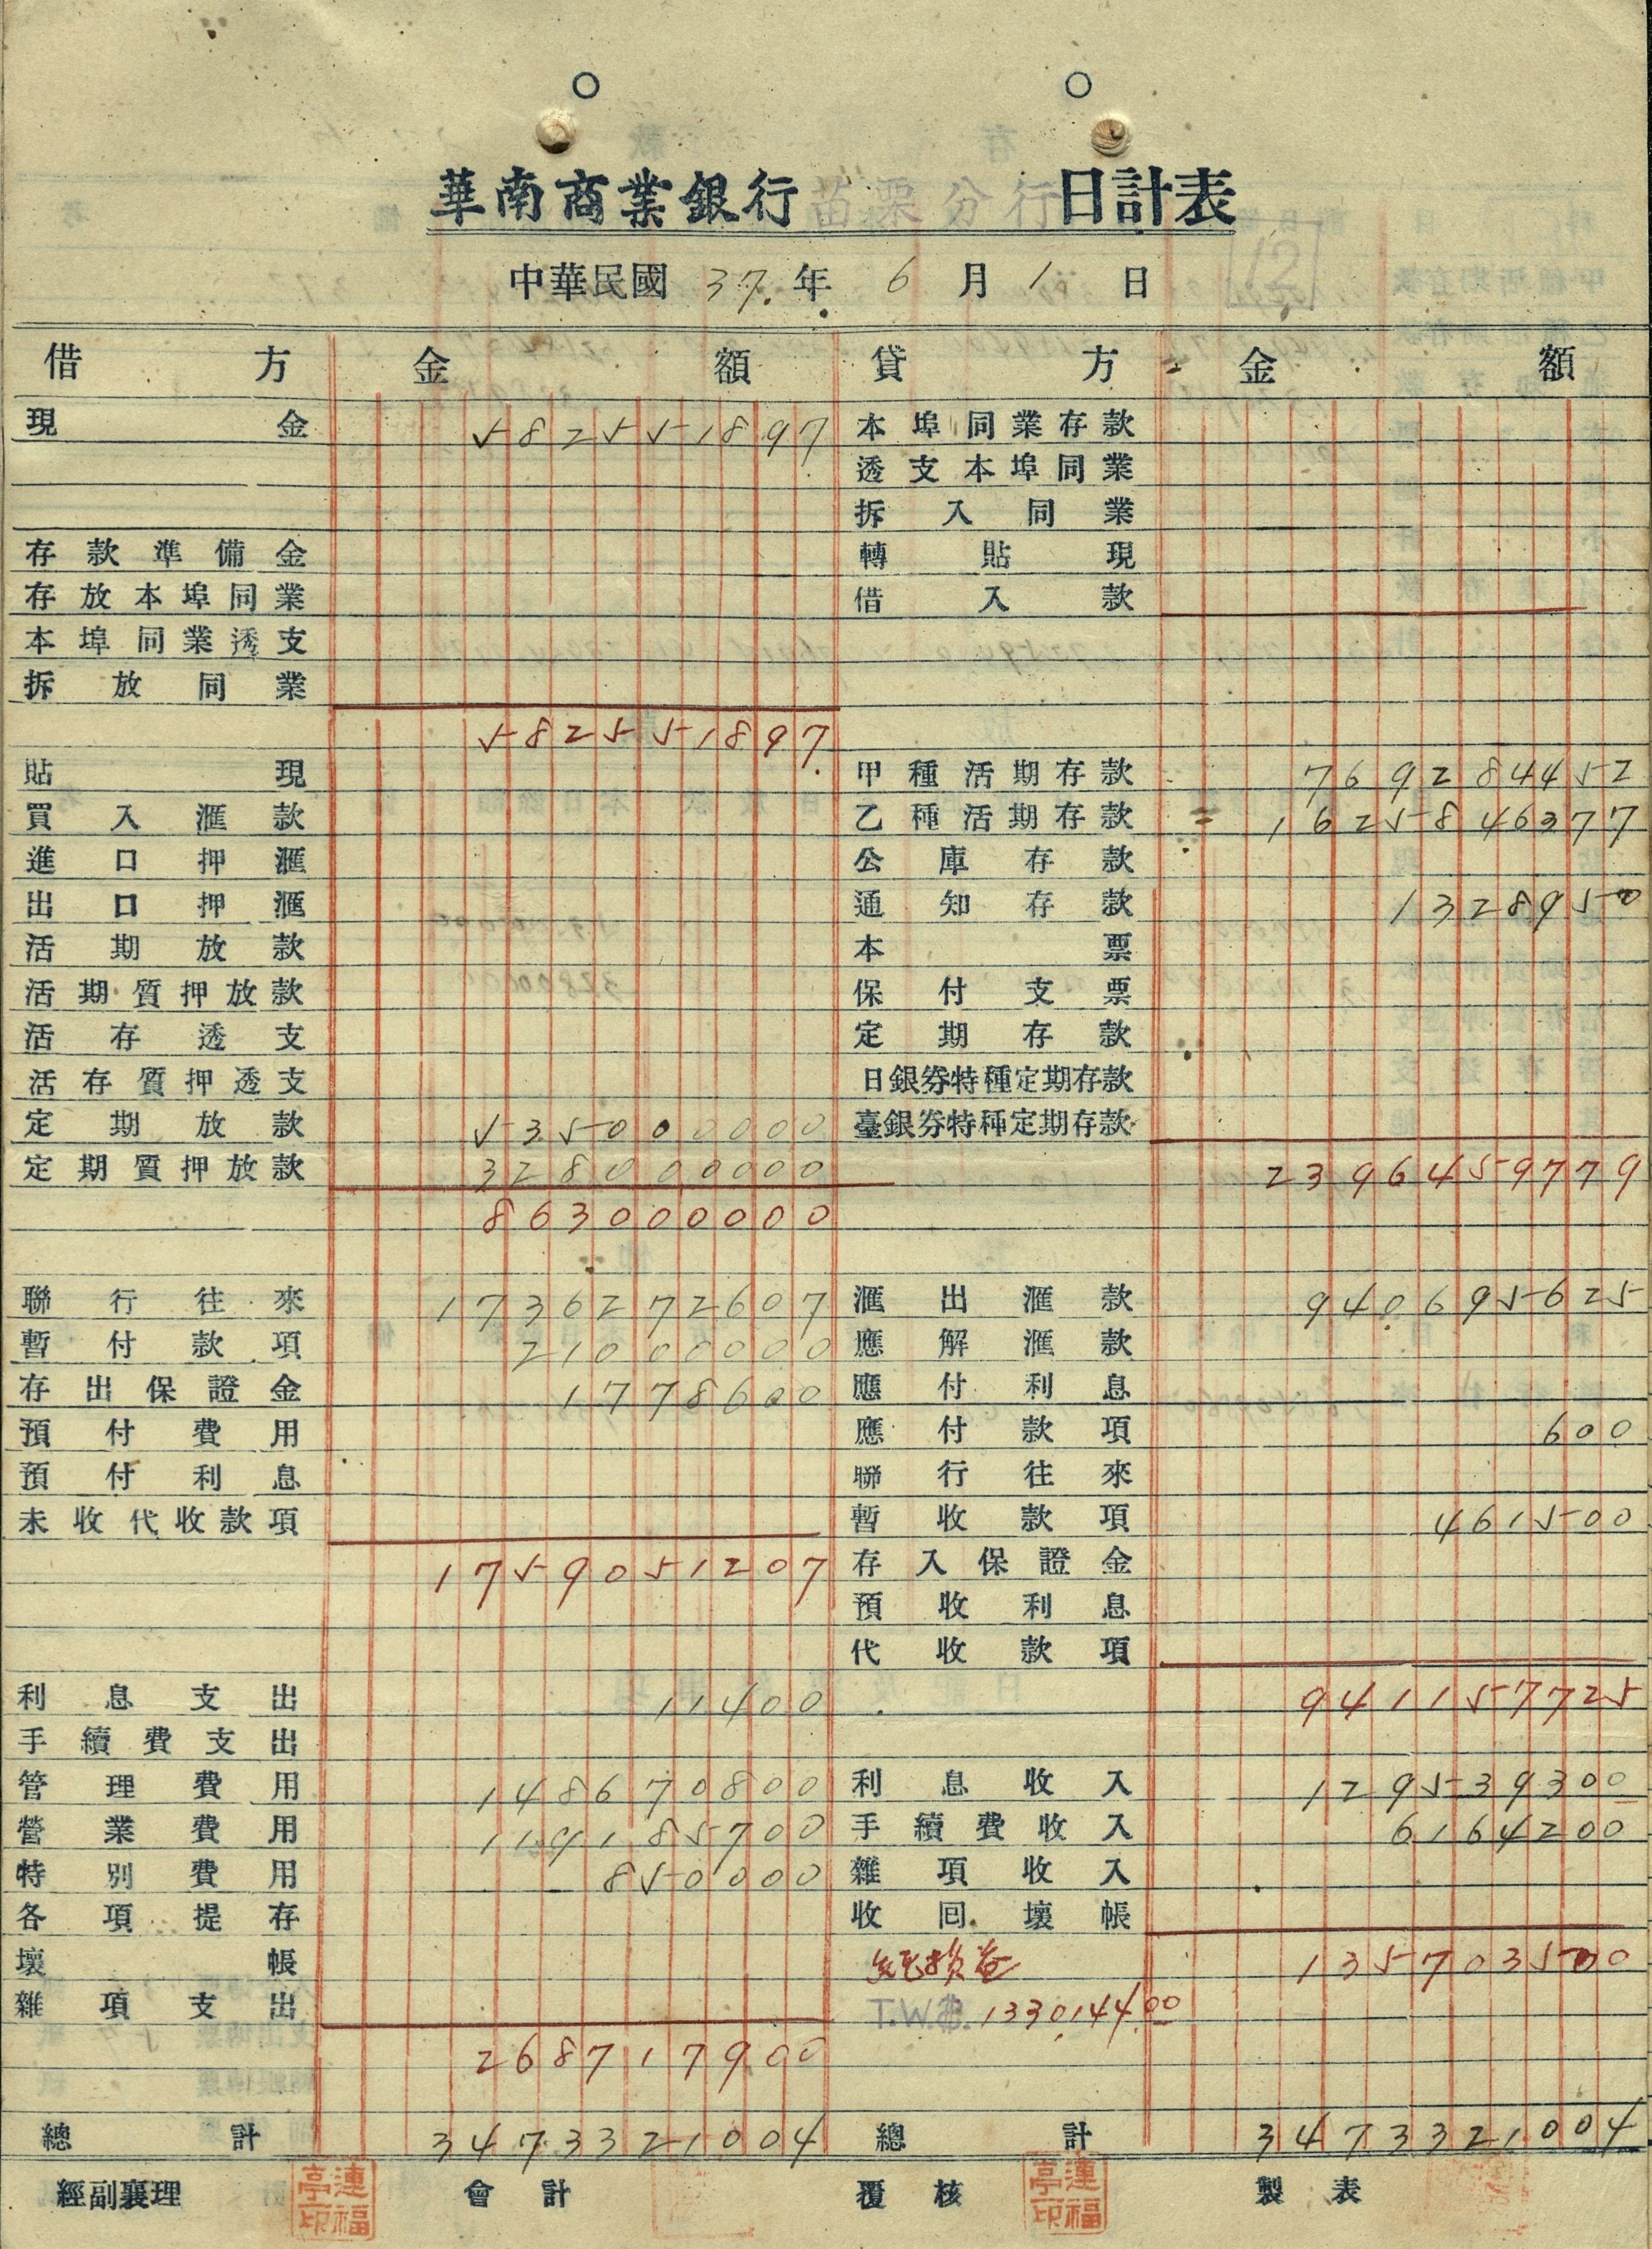 華南商業銀行苗栗分行日計表
中華民國 37. 年 6 月 1 日
12
借方 金額 貸方 金額
現金 582551897 本埠同業存款
透支本埠同業
拆入同業
存款準備金 轉貼現
存放本埠同業 借入款
本埠同業透支
拆放同業
582551897
貼現 甲種活期存款 769284452
買入滙款 乙種活期存款 1625846377
進口押滙 公庫存款
出口押滙 通知存款 1328950
活期放款 本票
活期質押放款 保付支票
活存透支 定期存款
活存質押透支 日銀券特種定期存款
定期放款 535000000 臺銀券特種定期存款
定期質押放款 328000000 2396459779
863000000
聯行往來 1736272607 滙出滙款 940695625
暫付款項 21000000 應解滙款
存出保證金 1778600 應付利息
預付費用 應付款項 600
預付利息 聯行往來
未收代收款項 暫收款項 461500
1759051207 存入保證金
預收利息
代收款項
利息支出 11400 941157725
手續費支出
管理費用 148670800 利息收入 129539300
營業費用 119185700 手續費收入 6164200
特別費用 850000 雜項收入
各項提存 收回壞帳
壞帳 純損益 135703500
雜項支出 T.W.B. 1330144.00
268717900
總計 3473321004 總計 3473321004
經副襄理 連福亭印 會計 覆核 連福亭印 製表